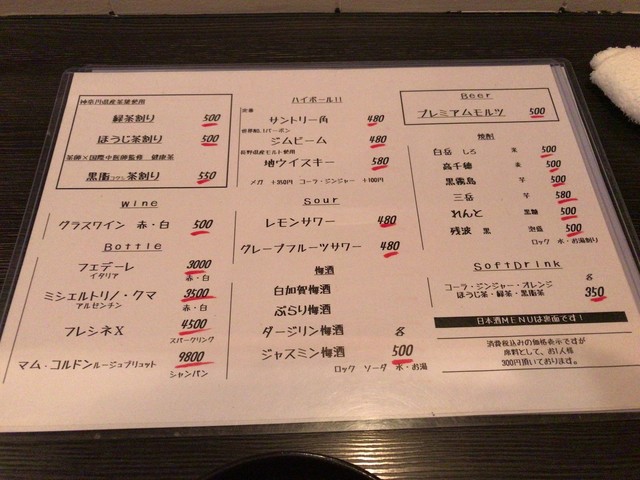 神奈川県産茶葉使用
緑茶割り 500
ほうじ茶割り 500
茶師×国際中医師監修 健康茶
黒脂コクシ茶割り 550
Wine
グラスワイン 赤・白 500
Bottle
フェデーレ 3000
イタリア 赤・白
ミシェルトリノ・クマ 3500
アルゼンチン 赤・白
フレシネX 4500
スパークリング
マム・コルドンルージュブリュット 9800
シャンパン
ハイボール!!
定番
サントリー角 480
世界No.1バーボン
ジムビーム 480
長野県産モルト使用
地ウイスキー 580
メガ +350円 コーラ・ジンジャー +100円
Sour
レモンサワー 480
グレープフルーツサワー 480
梅酒
白加賀梅酒
ぷらり梅酒
ダージリン梅酒 各
ジャスミン梅酒 500
ロック ソーダ 水・お湯
Beer
プレミアムモルツ 500
焼酎
白岳 しろ 米 500
高千穂 麦 500
黒霧島 芋 500
三岳 芋 580
れんと 黒糖 500
残波 黒 泡盛 500
ロック 水・お湯割り
SoftDrink
コーラ・ジンジャー・オレンジ 各
ほうじ茶・緑茶・黒脂茶 350
日本酒MENUは裏面です!
消費税込みの価格表示ですが
席料として、お1人様
300円頂いております。